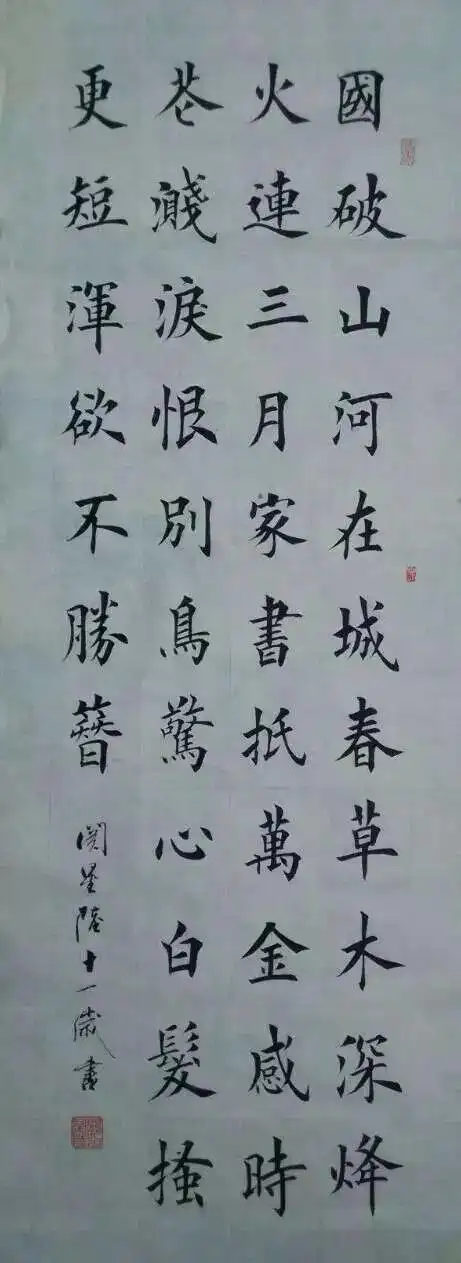 國破山河在城春草木深烽
火連三月家書抵萬金感時
花濺淚恨別鳥驚心白髮搔
更短渾欲不勝簪
星陸十一歲書